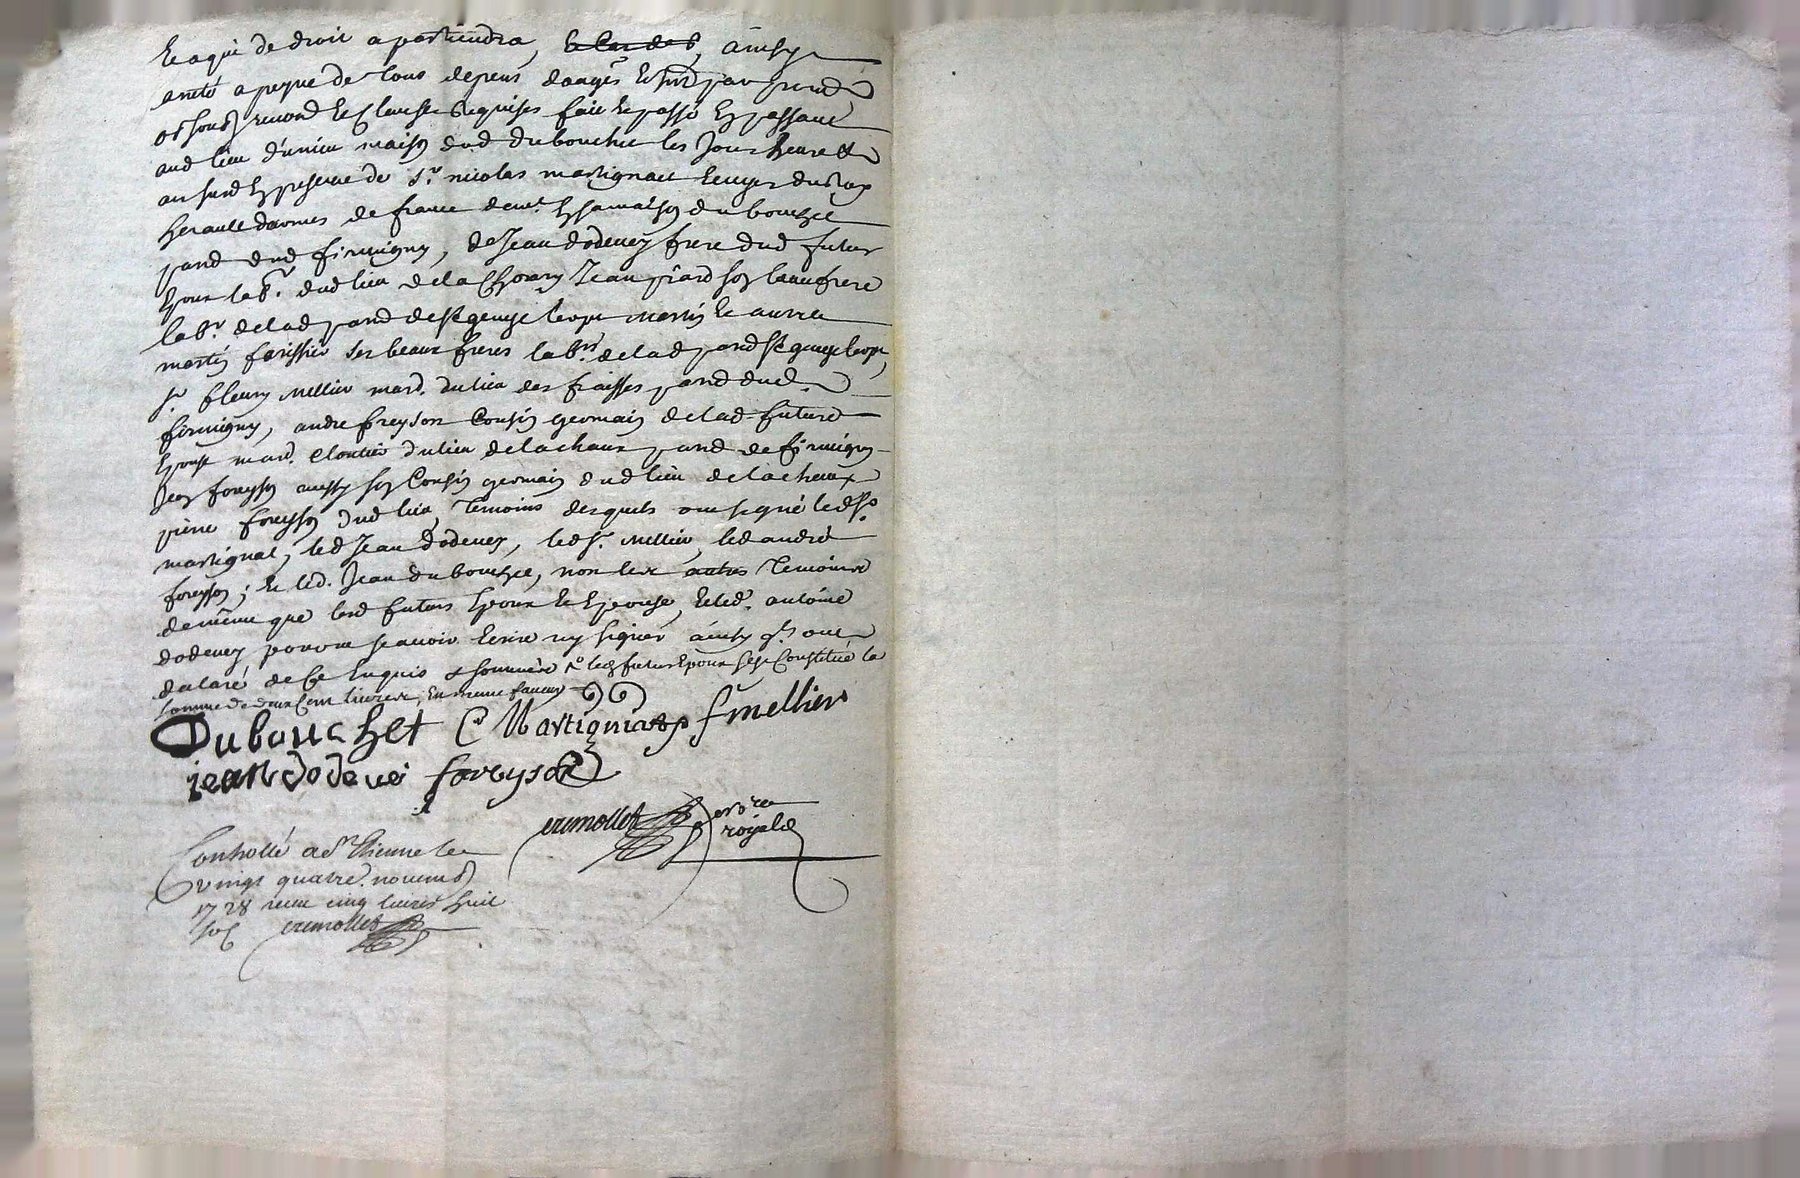 et a qui de droit apartiendra, ainsy
areté a peyne de tous depens
requises fait et passé
aud lieu maison dud dubouchet les jour heure &
an susd en presence de Sr. nicolas martignat ecuyer du Roy
heraut darmes de france demt. en sa maison du bouchet
parr dud firmigny, de Jean dodevey frere dud futur
epoux labr. dud lieu de la Jean piard son beaufrere
labr. de lad parr de st genys lerpt martin et autre
martin farissier ses beaux freres labrs. de lad parr st genys lerpt,
sr. fleury mellier mard. du lieu des fraisses parr dud.
firmigny, andre foreyson Cousin germain de lad future
epouse mard. cloutier du lieu de lachaux parr de firmigny
Jean foreyson aussy son Cousin germain dud lieu de lachaux
pierre foreyson dud lieu, temoins desquels ont signé led Sr.
martignat, led Jean dodevey, led sr. mellier, led andré
foreyson, et led. Jean dubouchet, non les autres temoins
de même que lesd futurs epoux et epouse, et led. antoine
dodevey pour ne sçavoir ecrire ny signer ainsy qls ont
declaré de ce enquis & sommés led futur epoux sest Constitué la
somme de deux Cent livres
Dubouchet Martignat f mellier
jean dodevei foreyson
cremollet nore
royal
Controllé a St Etienne le
vingt quatre. novemb
1728 recu cinq livres huit
sols cremollet